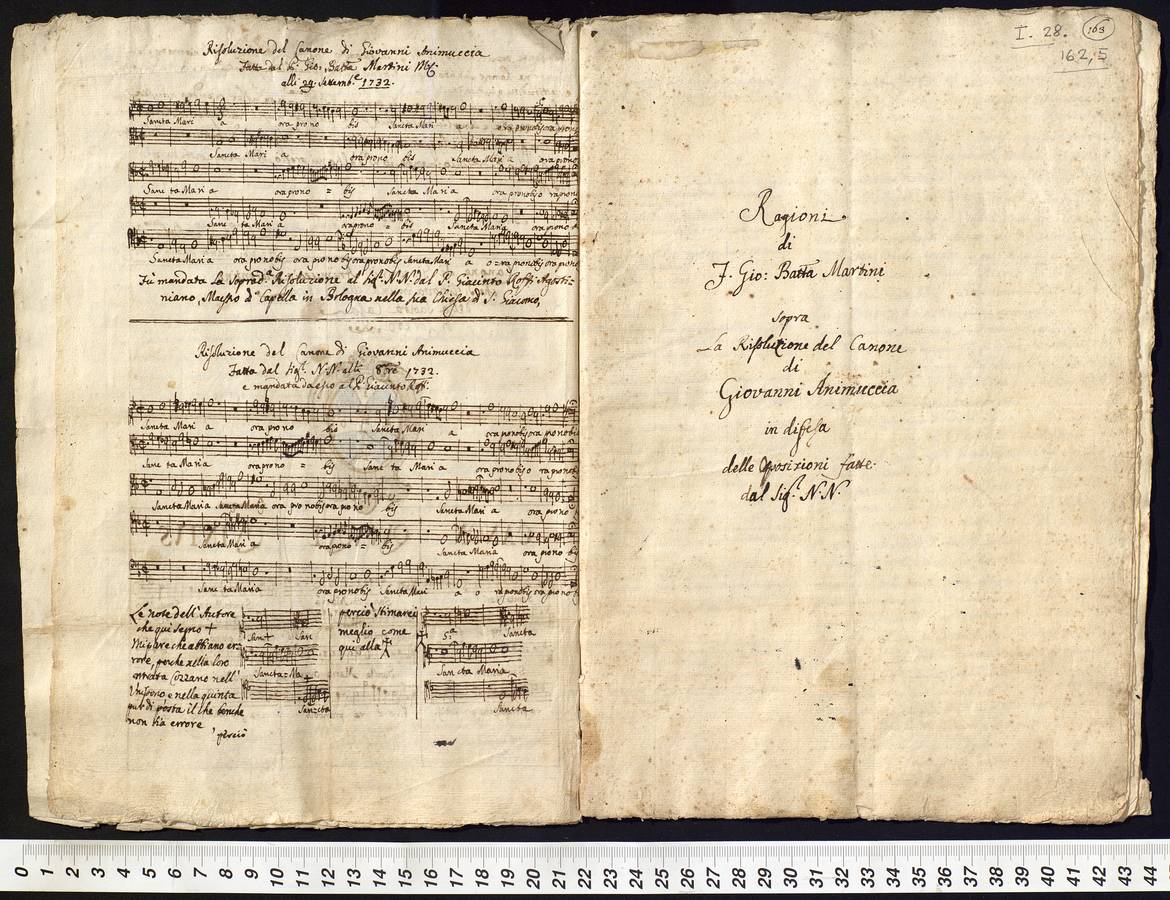 Risoluzione del Canone di Giovanni Animuccia
Fatta dal Gio: Batta Martini
alli 29. Settemb.e 1732.
Sancta Mari a ora pro no bis Sancta Mari a ora pronobis ora pronob
Sancta Mari a ora prono bis Sancta Mari a ora prono
Sanc ta Mari a ora prono = bis Sancta Mari a ora pronobis o ra pron
Sanc ta Mari a ora prono = bis Sancta Maria ora prono b
Sancta Maria ora pro nobis ora pro nobis ora pro nobis Sancta Mari a o = ra pro nobis ora pro
Fù mandata la soprad.a Risoluzione al Sig.r N.N. dal P. Giacinto Roffi Agosti=
niano, Maestro di Capella in Bologna nella sua Chiesa di S. Giacomo,
Risoluzione del Canone di Giovanni Animuccia
Fatta dal Sig.r N.N. alli 8bre 1732.
e mandata da esso al P. Giacinto Roffi.
Sancta Mari a ora pro no bis Sancta Mari a ora pronobis ora pronobis
Sanc ta Maria ora prono = bis Sanc ta Mari a ora pronobis o ra pronobis
Sancta Maria Sancta Maria ora pro nobis ora pro no bis Sancta Mari a ora prono
Sancta Mari a ora prono = bis Sancta Maria ora prono bis
Sanc ta Maria ora pro nobis Sancta Mari a o ra pronobis ora pro no
Le note dell'Autore
che qui segno +
mi pare che abbiano er=
rore, perche nella loro
entrata cozzano nell'
Unissono e nella quinta
può di posta il che benche
non sia errore
perciò
San+ San
Sancta=Ma
Sancta
perciò stimarei
meglio come
qui alla +
5.a Sancta
Sancta Maria
Sancta
I. 28. 163
162,5
Ragioni
di
F. Gio: Batta Martini
sopra
La Risoluzione del Canone
di
Giovanni Animuccia
in difesa
delle Oposizioni fatte.
dal Sig.r N.N.
0 1 2 3 4 5 6 7 8 9 10 11 12 13 14 15 16 17 18 19 20 21 22 23 24 25 26 27 28 29 30 31 32 33 34 35 36 37 38 39 40 41 42 43 44